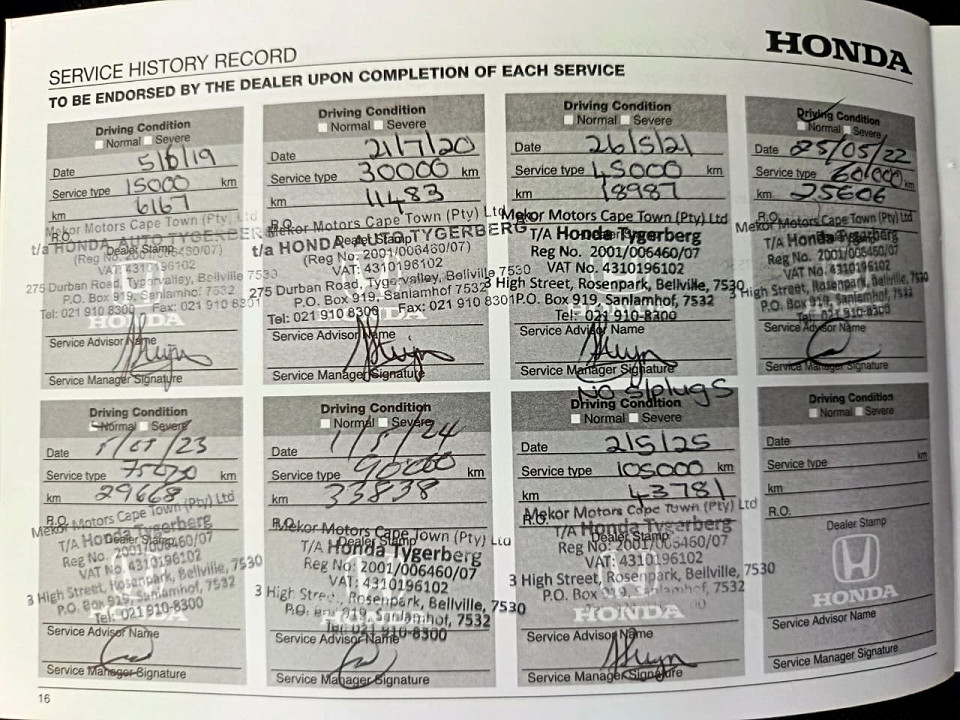 SERVICE HISTORY RECORD
HONDA
TO BE ENDORSED BY THE DEALER UPON COMPLETION OF EACH SERVICE
Driving Condition
Normal Severe
Date 5/6/19
Service type 15000 km
km 6167
R.O.
Mekor Motors Cape Town (Pty) Ltd
t/a HONDA AUTO TYGERBERG
Dealer Stamp
(Reg No. 2001/006460/07)
VAT: 4310196102
275 Durban Road, Tygervalley, Bellville 7530
P.O. Box 919, Sanlamhof 7532
Tel: 021 910 8300 Fax: 021 910 8301
HONDA
Service Advisor Name
Service Manager Signature
Driving Condition
Normal Severe
Date 21/7/20
Service type 30000 km
km 11483
R.O.
Mekor Motors Cape Town (Pty) Ltd
t/a HONDA AUTO TYGERBERG
Dealer Stamp
(Reg No. 2001/006460/07)
VAT: 4310196102
275 Durban Road, Tygervalley, Bellville 7530
P.O. Box 919, Sanlamhof 7532
Tel: 021 910 8300 Fax: 021 910 8301
HONDA
Service Advisor Name
Service Manager Signature
Driving Condition
Normal Severe
Date 26/5/21
Service type 45000 km
km 18987
Mekor Motors Cape Town (Pty) Ltd
T/A Honda Tygerberg
Reg No. 2001/006460/07
VAT No. 4310196102
3 High Street, Rosenpark, Bellville, 7530
P.O. Box 919, Sanlamhof, 7532
Tel: 021 910-8300
Service Advisor Name
Service Manager Signature
No s/plugs
Driving Condition
Normal Severe
Date 25/05/22
Service type 60000 km
km 25606
R.O.
Mekor Motors Cape Town (Pty) Ltd
T/A Honda Tygerberg
Reg No. 2001/006460/07
VAT No. 4310196102
3 High Street, Rosenpark, Bellville, 7530
P.O. Box 919, Sanlamhof, 7532
Tel: 021 910-8300
Service Advisor Name
Service Manager Signature
Driving Condition
Normal Severe
Date
Service type km
km 29668
R.O.
Mekor Motors Cape Town (Pty) Ltd
T/A Honda Tygerberg
Reg No. 2001/006460/07
VAT No. 4310196102
3 High Street, Rosenpark, Bellville, 7530
P.O. Box 919, Sanlamhof, 7532
Tel: 021 910-8300
Service Advisor Name
Service Manager Signature
Driving Condition
Normal Severe
Date
Service type 90000 km
km 33838
R.O.
Mekor Motors Cape Town (Pty) Ltd
Dealer Stamp
T/A Honda Tygerberg
Reg No. 2001/006460/07
VAT: 4310196102
3 High Street, Rosenpark, Bellville, 7530
P.O. Box 919, Sanlamhof, 7532
Tel: 021 910-8300
HONDA
Service Advisor Name
Service Manager Signature
Driving Condition
Normal Severe
Date 2/5/25
Service type 105000 km
km 43781
R.O.
Mekor Motors Cape Town (Pty) Ltd
T/A Honda Tygerberg
Dealer Stamp
Reg No. 2001/006460/07
VAT: 4310196102
3 High Street, Rosenpark, Bellville, 7530
P.O. Box 919, Sanlamhof, 7532
HONDA
Service Advisor Name
Service Manager Signature
Driving Condition
Normal Severe
Date
Service type km
km
R.O.
Dealer Stamp
HONDA
Service Advisor Name
Service Manager Signature
16